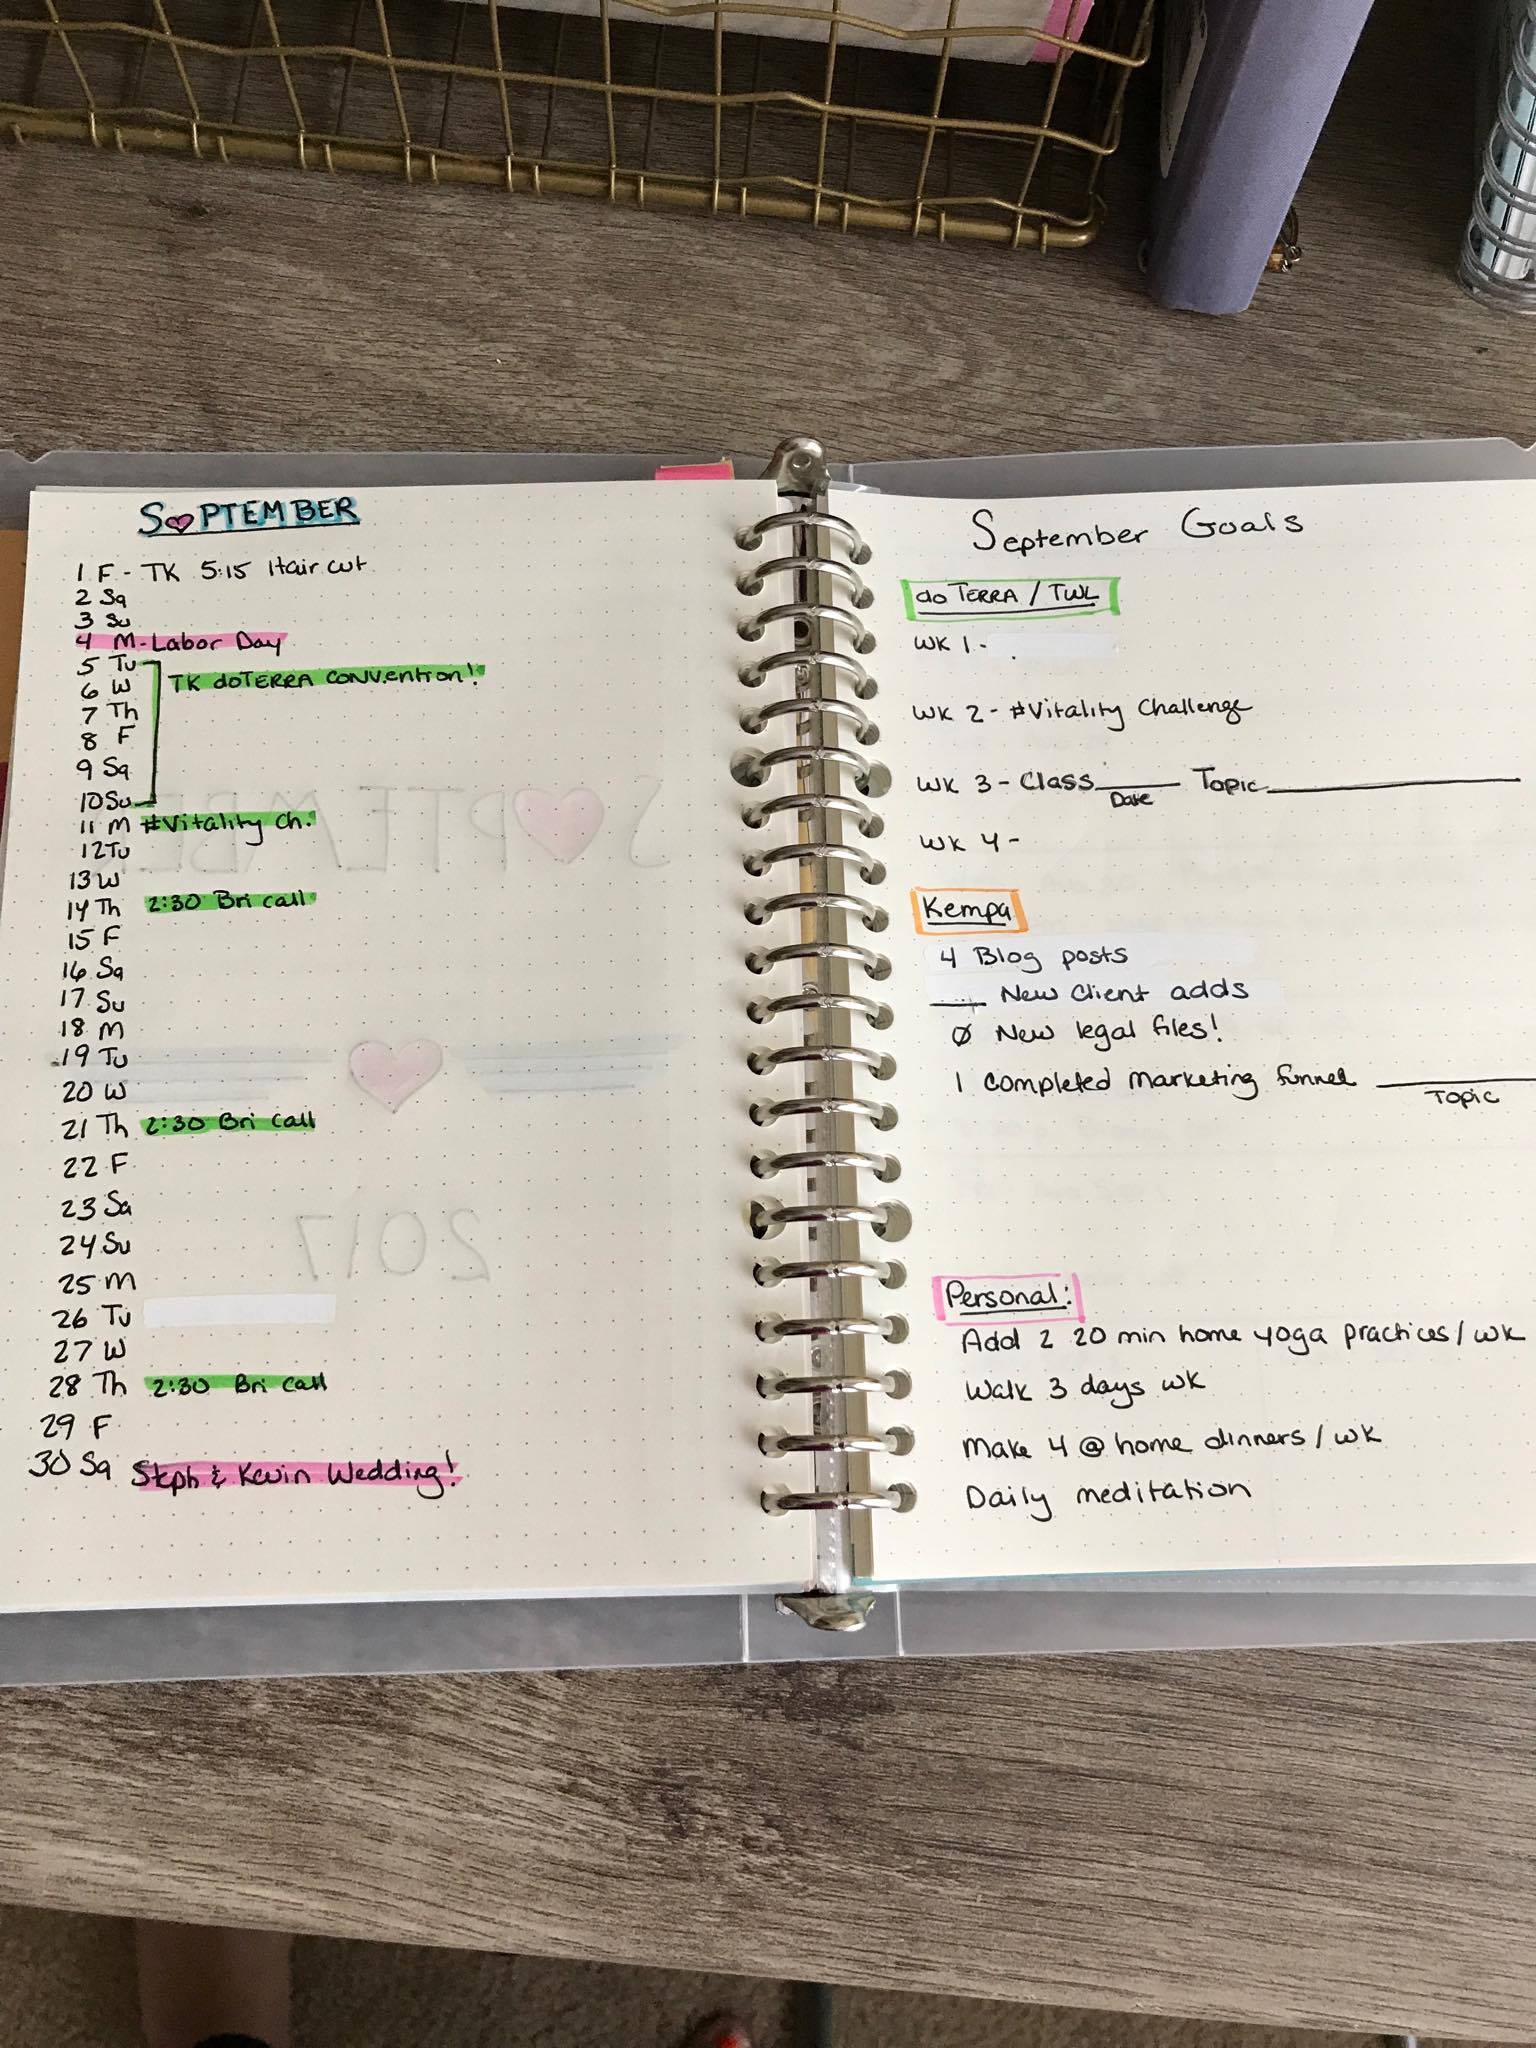 SEPTEMBER
1 F - TK 5:15 Haircut
2 Sa
3 Su
4 M - Labor Day
5 Tu
TK doTERRA CONVention!
6 W
7 Th
8 F
9 Sa
10 Su
11 M #Vitality Ch.
12 Tu
13 W
14 Th 2:30 Bri call
15 F
16 Sa
17 Su
18 M
19 Tu
20 W
21 Th 2:30 Bri call
22 F
23 Sa
24 Su
25 M
26 Tu
27 W
28 Th 2:30 Bri call
29 F
30 Sa Steph & Kevin Wedding!
SEPTEMBER
2017
September Goals
doTERRA / TWL
WK 1 -
WK 2 - #Vitality Challenge
WK 3 - Class______ Topic______
Date
WK 4 -
Kempa
4 Blog posts
____ New Client adds
Ø New legal files!
1 completed marketing funnel ______
Topic
Personal:
Add 2 20 min home yoga practices / wk
Walk 3 days wk
Make 4 @ home dinners / wk
Daily meditation